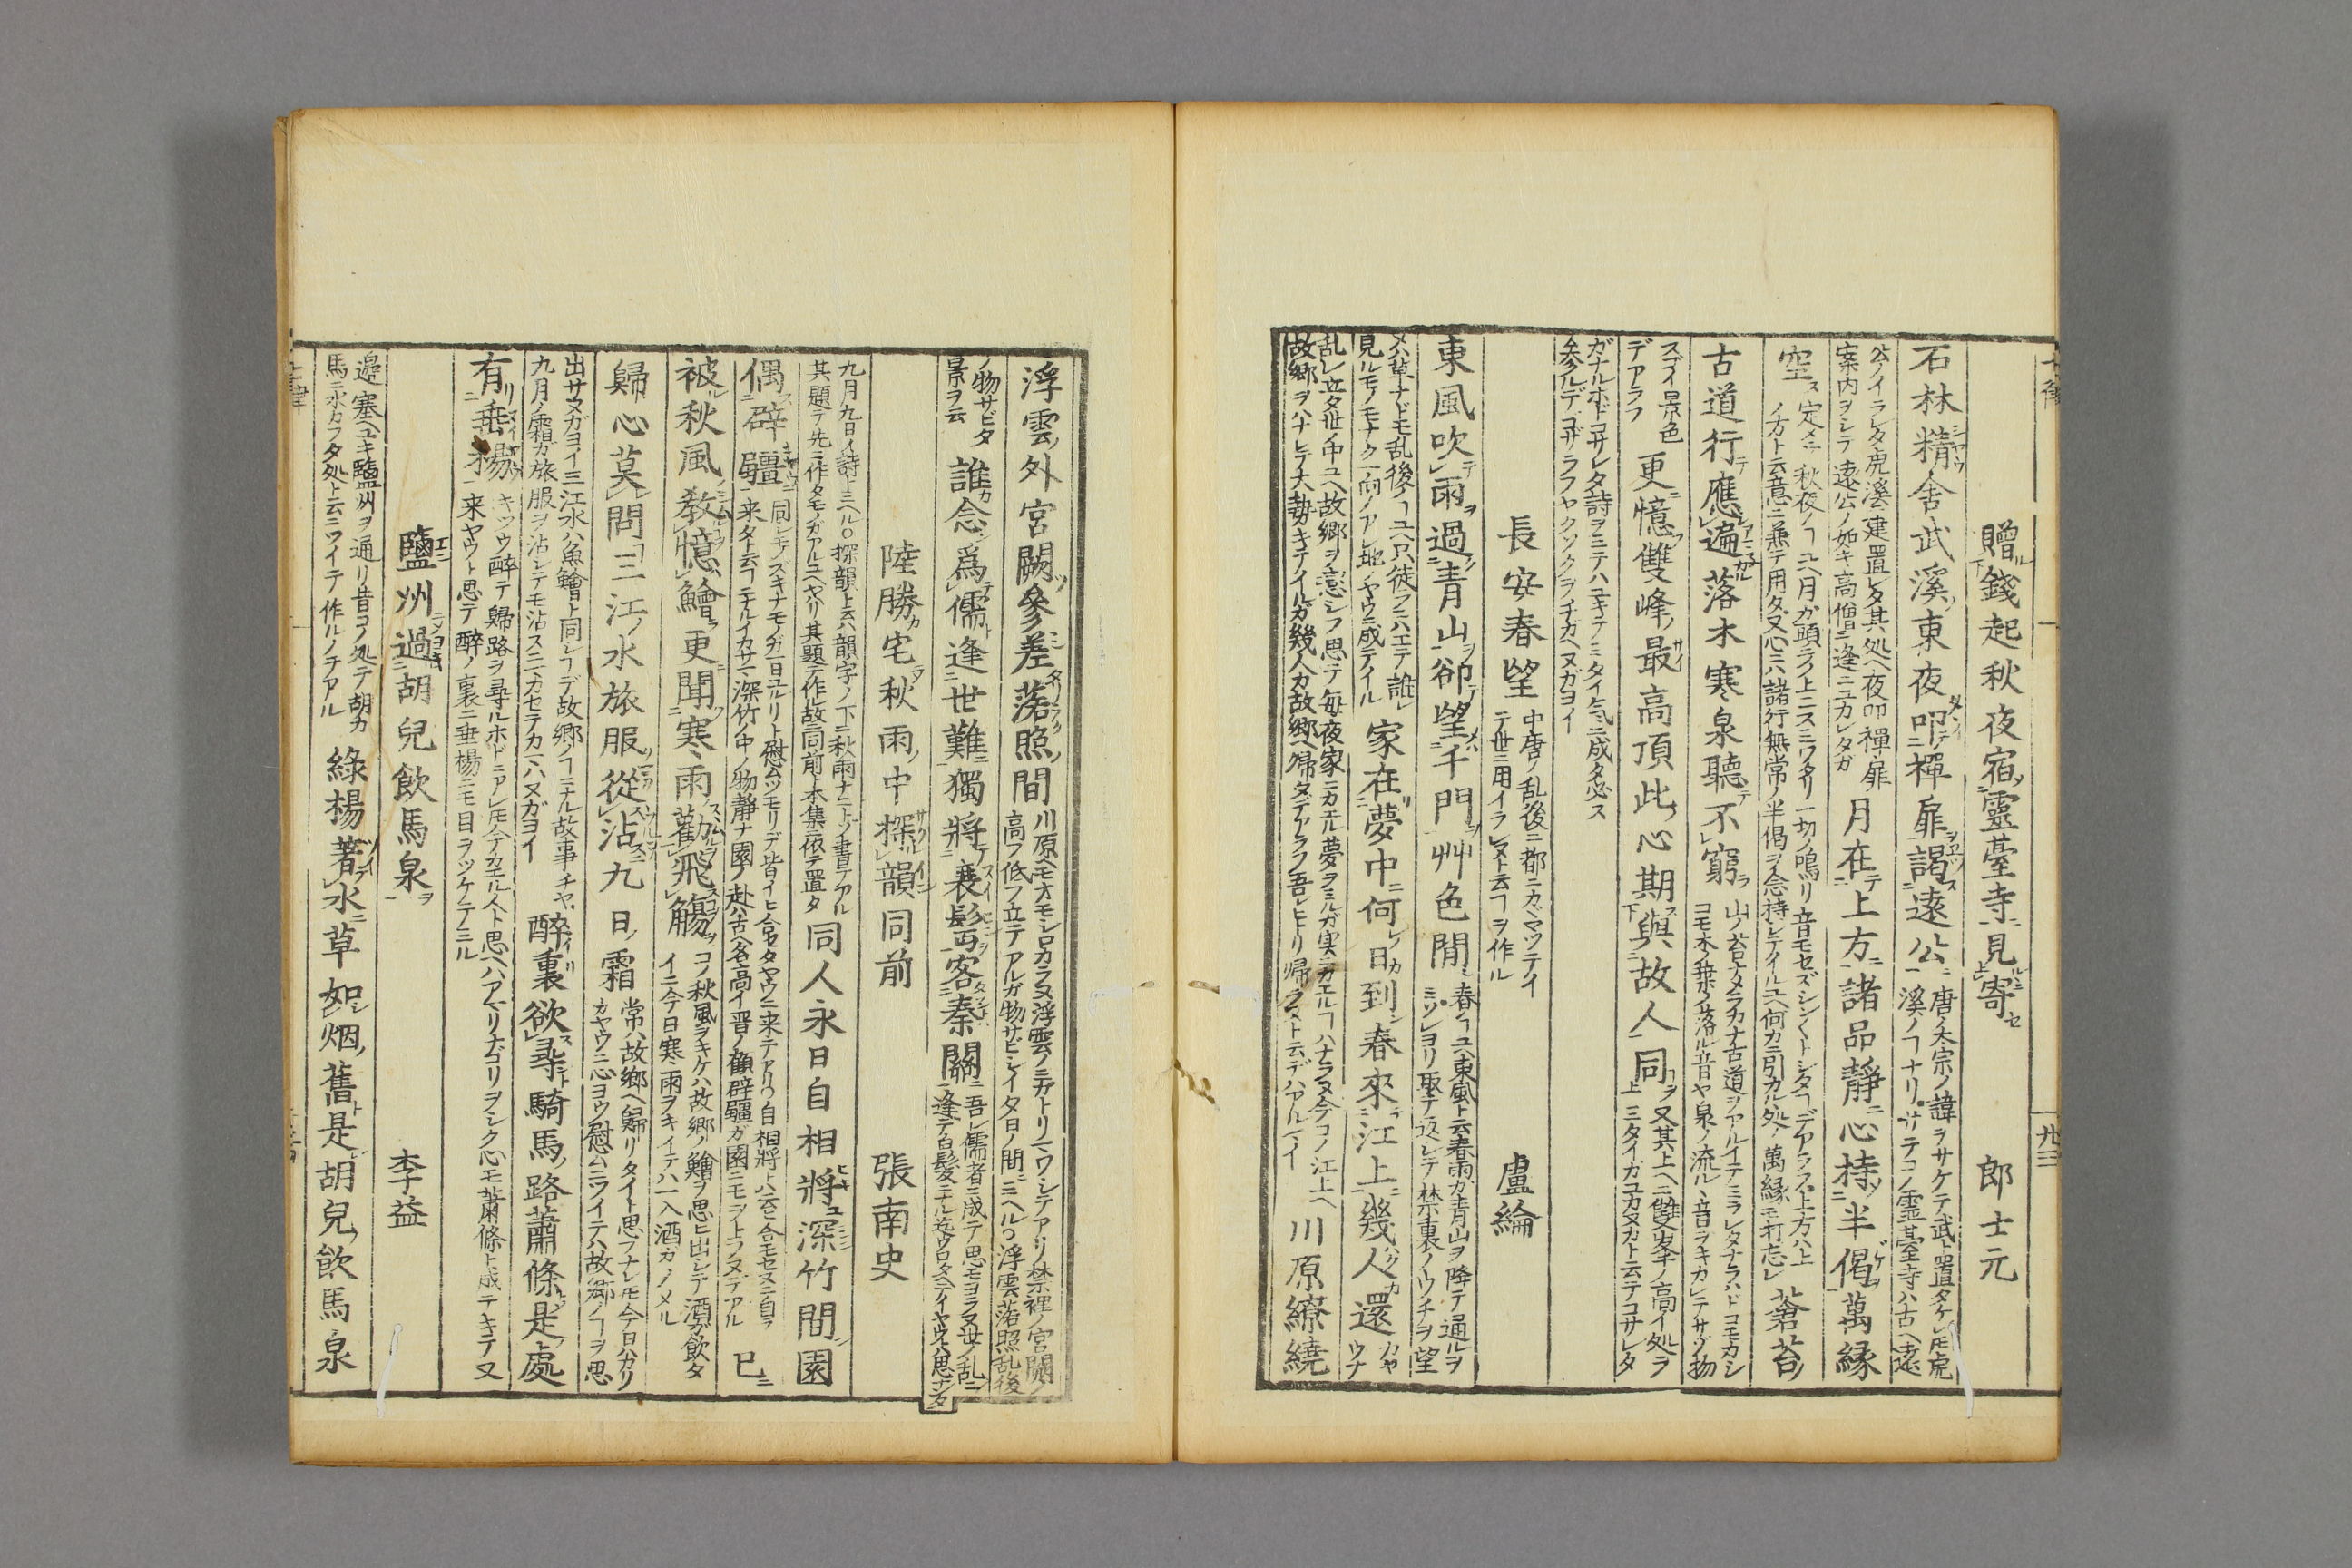 贈錢起秋夜宿靈臺寺見寄 郎士元
石林精舍武溪東夜叩禪扉謁遠公
唐ノ太宗ノ諱ヲサケテ武ト置タケレ𪜈虎
溪ノヿナリサテコノ霊臺寺ハ古ヘ遠
公ノイラレタ虎溪ニ建置レタ其処ヘ夜叩禪扉
案内ヲシテ遠公ノ如キ高僧ニ逢ニユカレタガ
月在上方諸品靜心持半偈萬縁
空
定メテ秋夜ノヿユヘ月ガ頭ラノ上ニスミワタリ一切ノ鳴リ音モセズシン〱トシタヿデアラフ上方ハ上
ノ方ト云意ニ兼テ用タ又心ニハ諸行無常ノ半偈ヲ念持シテイルユヘ何カニ引カル処ノ萬縁モ打忘レ
蒼苔
古道行應遍落木寒泉聽不窮
山ノ苔ムタラカナ古道ヲアルイテミラレタナラハドコモカシ
コモ木ノ葉ノ落ル音ヤ泉ノ流ルヽ音ヲキカレテサゾ物
スゴイ景色
デアラフ
更憶雙峰最高頂此心期與故人同
又其上ヘニ雙峯ノ高イ処ヲ
ミタイガユカヌカト云テコサレタ
ガナルホドコサレタ詩ヲミテハユキテミタイ氣ニ成タ必ス
参ルデゴザラフヤクソクヲチガヘヌガヨイ
長安春望
中唐ノ乱後ニ都ニカヾマツテイ
テ世ニ用イラレヌト云ヿヲ作ル
盧綸
東風吹雨過青山卻望千門艸色閒
春ノヿユヘ東風ト云春雨ガ青山ヲ降テ通ルヲ
ミツレヨリ取テ返シテ禁裏ノウチヲ望
メハ草ナドモ乱後ノヿユヘ只徒フニハエテ誰レ
見ルモノモナク一向ノアレ地ノヤウニ成テイル
家在夢中何日到春來江上幾人還
カヤ
ウナ
乱レ立タ世ノ中ユヘ故郷ヲ戀シフ思テ毎夜家ニカエル夢ヲミルガ実ニカエルヿハナラヌ今コノ江上ヘ
故郷ヲハナレテ大勢キテイルガ幾人カ故郷ヘ帰タデアラフ吾レヒトリ帰ラヌト云デハアルマイ
川原繚繞
浮雲外宮闕參差落照間
川原ヘモオモシロカラヌ浮雲ノ外トリマワシテアリ禁裡ノ宮闕ノ
高フ低フ立テアルガ物サビシイ夕日ノ間ニミヘル○浮雲落照乱後
ノ物サビタ
景ヲ云
誰念爲儒逢世難獨將衰鬂客秦關
吾レ儒者ニ成テ思モヨラヌ世ノ乱ニ
逢テ白髪ニナル迄ウロタヘテイヤウトハ思ナンダ
陸勝宅秋雨中探韻同前 張南史
九月九日ノ詩トミヘル○探韻ト云ハ韻字ノ下ニ秋雨ナニトノ書テアル
其題テ先ニ作タモノガアルユヘヤハリ其題テ作ル故ニ同前ト本集ニ依テ置タ
同人永日自相將深竹間園
偶辟疆
同シモノズキナモノガ一日ユルリト慰ムツモリデ皆イヒ合セタヤウニ来テアリ○自相將トハ云ヒ合モセヌニ自ラ
来タト云ヿニナルイカサマ深竹ノ中ノ物靜ナ園ノ赴ハ古ヘ名高イ晋ノ顧辟疆ガ園ニモヲトラヌデアル
已
被秋風教憶鱠更聞寒雨勸飛觴
コノ秋風ヲキケハ故郷ノ鱠ヲ思ヒ出シテ酒ガ飲タ
イニ今日寒雨ヲキイテハ一入酒カノメル
歸心莫問三江水旅服從沾九日霜
常ハ故郷ヘ歸リタイト思フナレ𪜈今日ハカリ
カヤウニ心ヨウ慰ムニツイテハ故郷ノヿヲ思
出サヌガヨイ三江水ハ魚鱠ト同シヿデ故郷ノヿニナル故事チヤ
九月ノ霜ガ旅服ヲ沾シテモ沾スニマカセテカマハヌガヨイ
醉裏欲尋騎馬路蕭條是處
有垂楊
キツウ醉テ歸路ヲ尋ルホドニアレ𪜈今カエル人ト思ヘハアマリナゴリヲシク心モ蕭條ト成テキテ又
来ヤウト思テ醉ノ裏ニ垂楊ニモ目ヲツケテミル
鹽州過胡兒飲馬泉 李益
邉塞ヘユキ鹽州ヲ通リ昔コノ処テ胡カ
馬ニ水カフタ処ト云ニツイテ作ルノテアル
綠楊著水草如烟舊是胡兒飲馬泉